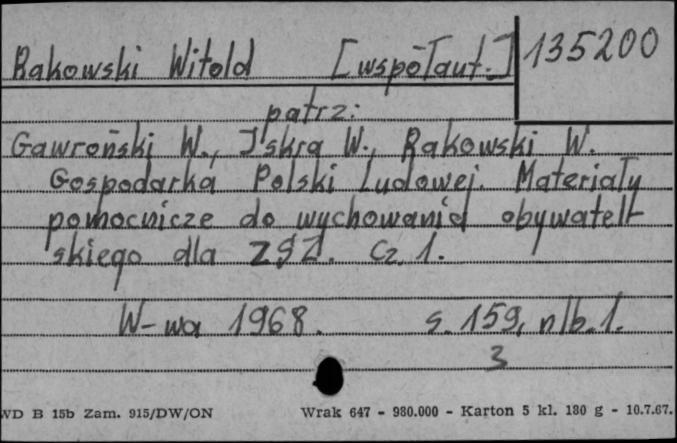 Rakowski Witold [współaut.] 135200
patrz:
Gawroński W., Iskra W., Rakowski W.
Gospodarka Polski Ludowej. Materiały
pomocnicze do wychowania obywatel-
skiego dla ZSZ. Cz. 1.
W-wa 1968. s. 159, nlb. 1.
3
WD B 15b Zam. 915/DW/ON Wrak 647 - 980.000 - Karton 5 kl. 180 g - 10.7.67.